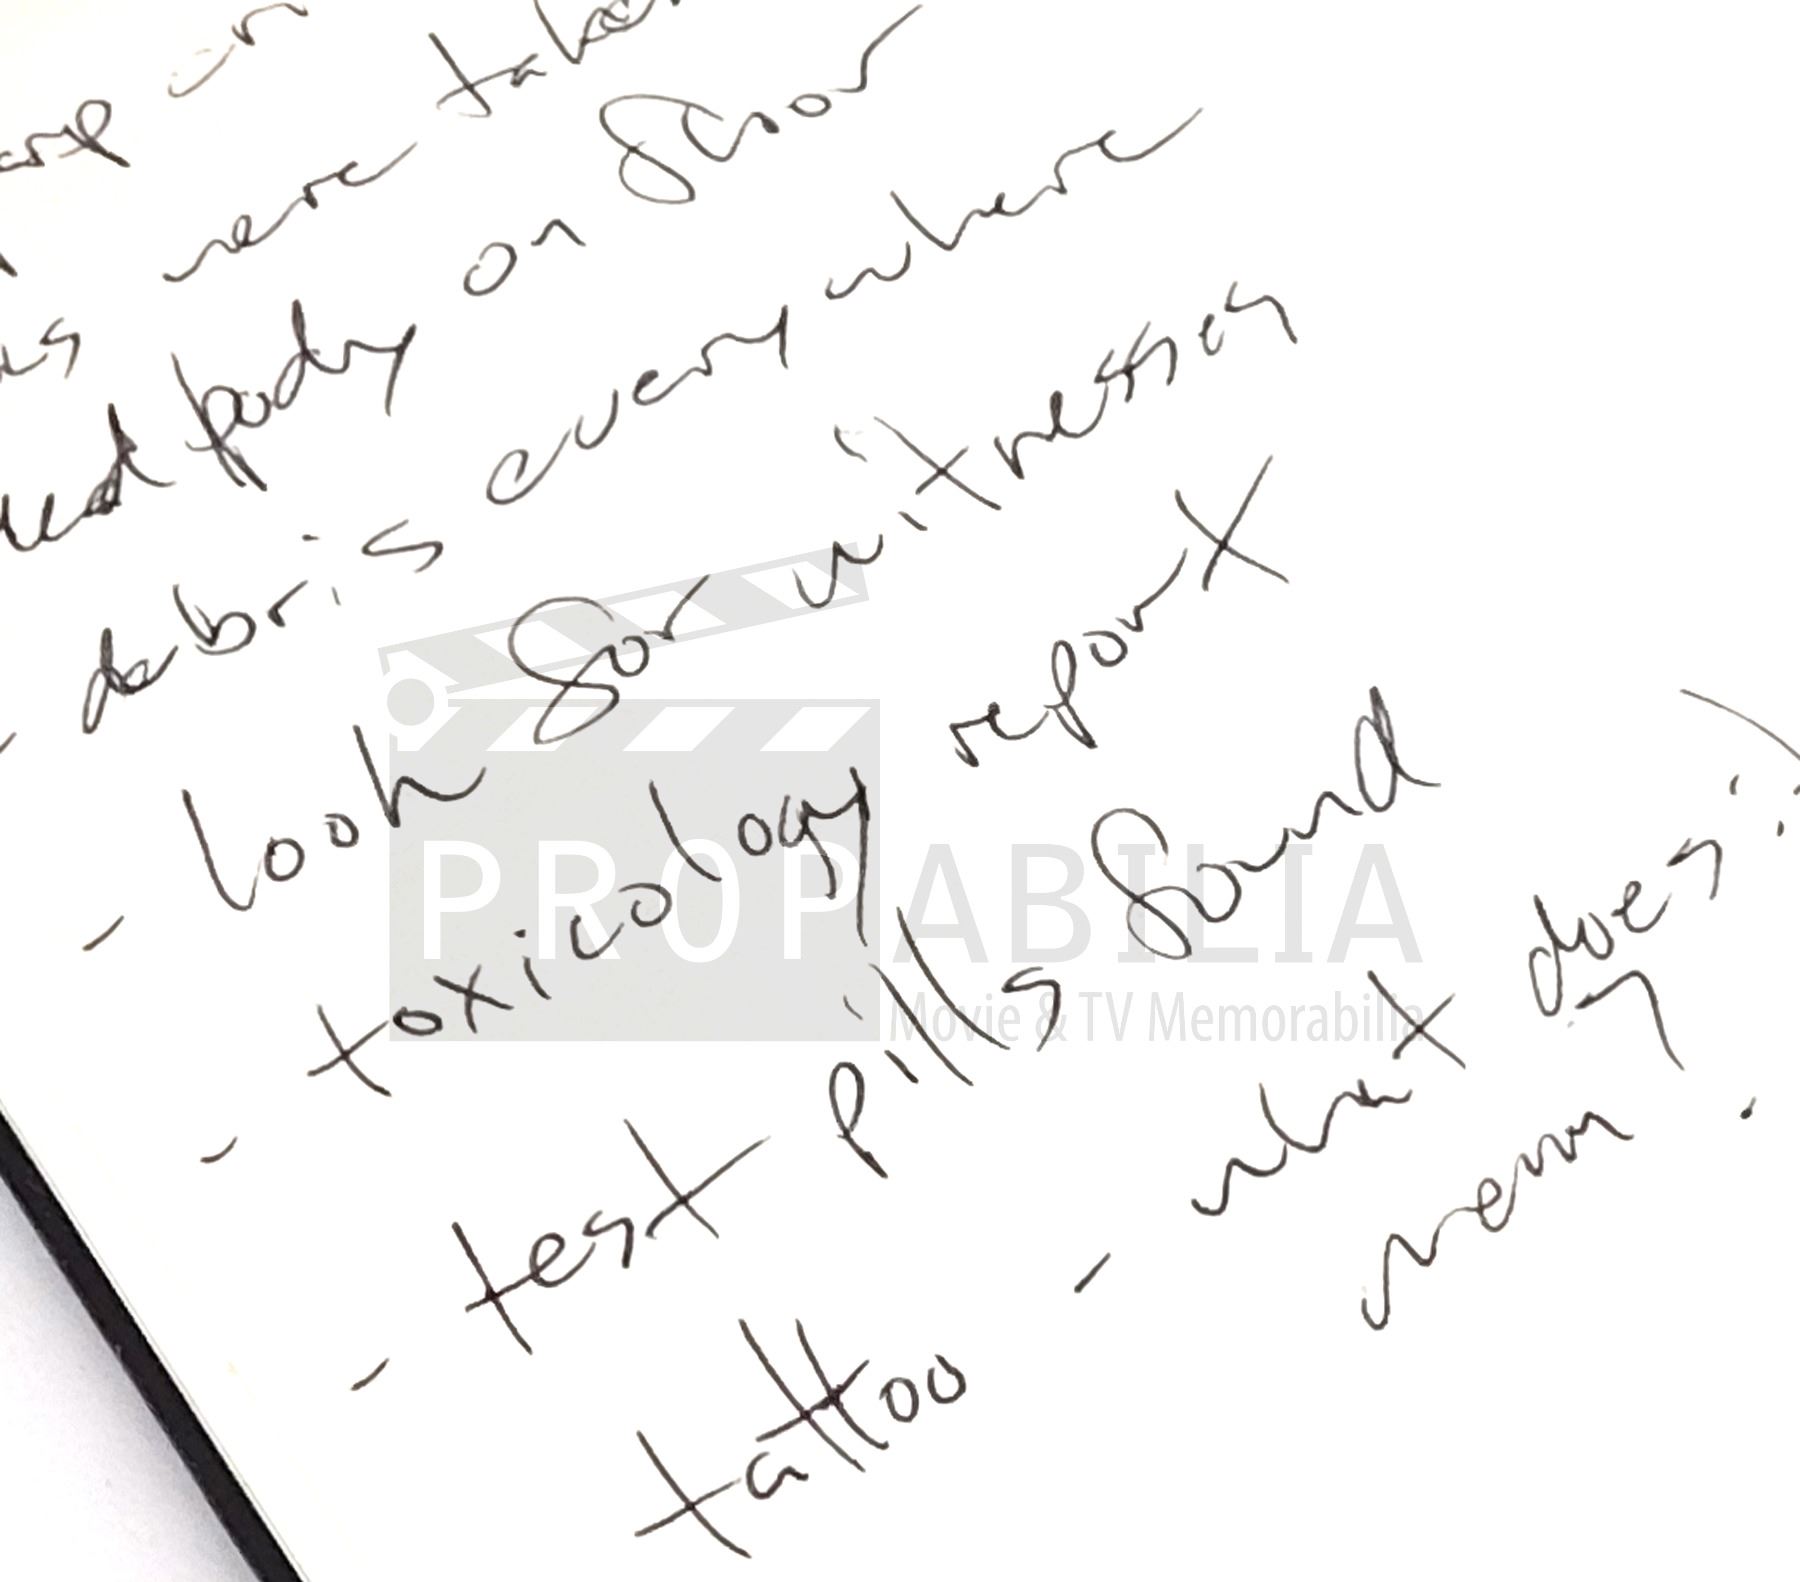 on
were
body on floor
debris everywhere
- look for witnesses
- toxicology report
- test pills found
- tattoo - what does
mean?
PROPABILIA
Movie & TV Memorabilia